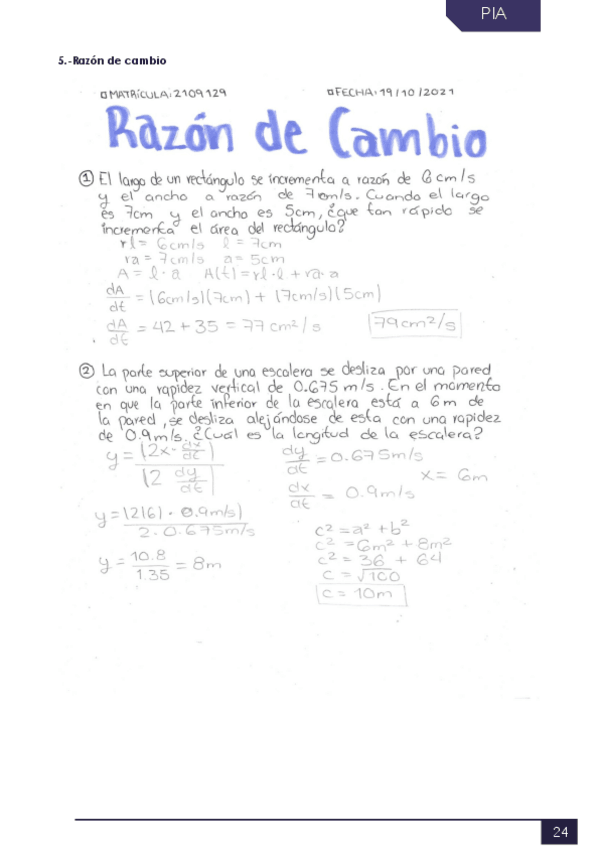 PIA
5.-Razón de cambio
MATRÍCULA: 2109129 FECHA: 19/10/2021
Razón de Cambio
① El largo de un rectángulo se incrementa a razón de 6 cm/s
y el ancho a razón de 7cm/s. Cuando el largo
es 7cm y el ancho es 5cm, ¿que tan rápido se
incrementa el área del rectángulo?
rl = 6cm/s l = 7cm
ra = 7cm/s a = 5cm
A = l · a A(t) = rl · l + ra · a
dA/dt = (6cm/s)(7cm) + (7cm/s)(5cm)
dA/dt = 42 + 35 = 77 cm²/s 79cm²/s
② La parte superior de una escalera se desliza por una pared
con una rapidez vertical de 0.675 m/s. En el momento
en que la parte inferior de la escalera está a 6m de
la pared, se desliza alejándose de esta con una rapidez
de 0.9m/s. ¿Cuál es la longitud de la escalera?
y = (2x · dx/dt) / (2 dy/dt) dy/dt = 0.675m/s
x = 6m
dx/dt = 0.9m/s
y = (2(6) · 0.9m/s) / 2 · 0.675m/s
c² = a² + b²
c² = 6m² + 8m²
y = 10.8/1.35 = 8m c² = 36 + 64
c = √100
c = 10m
24